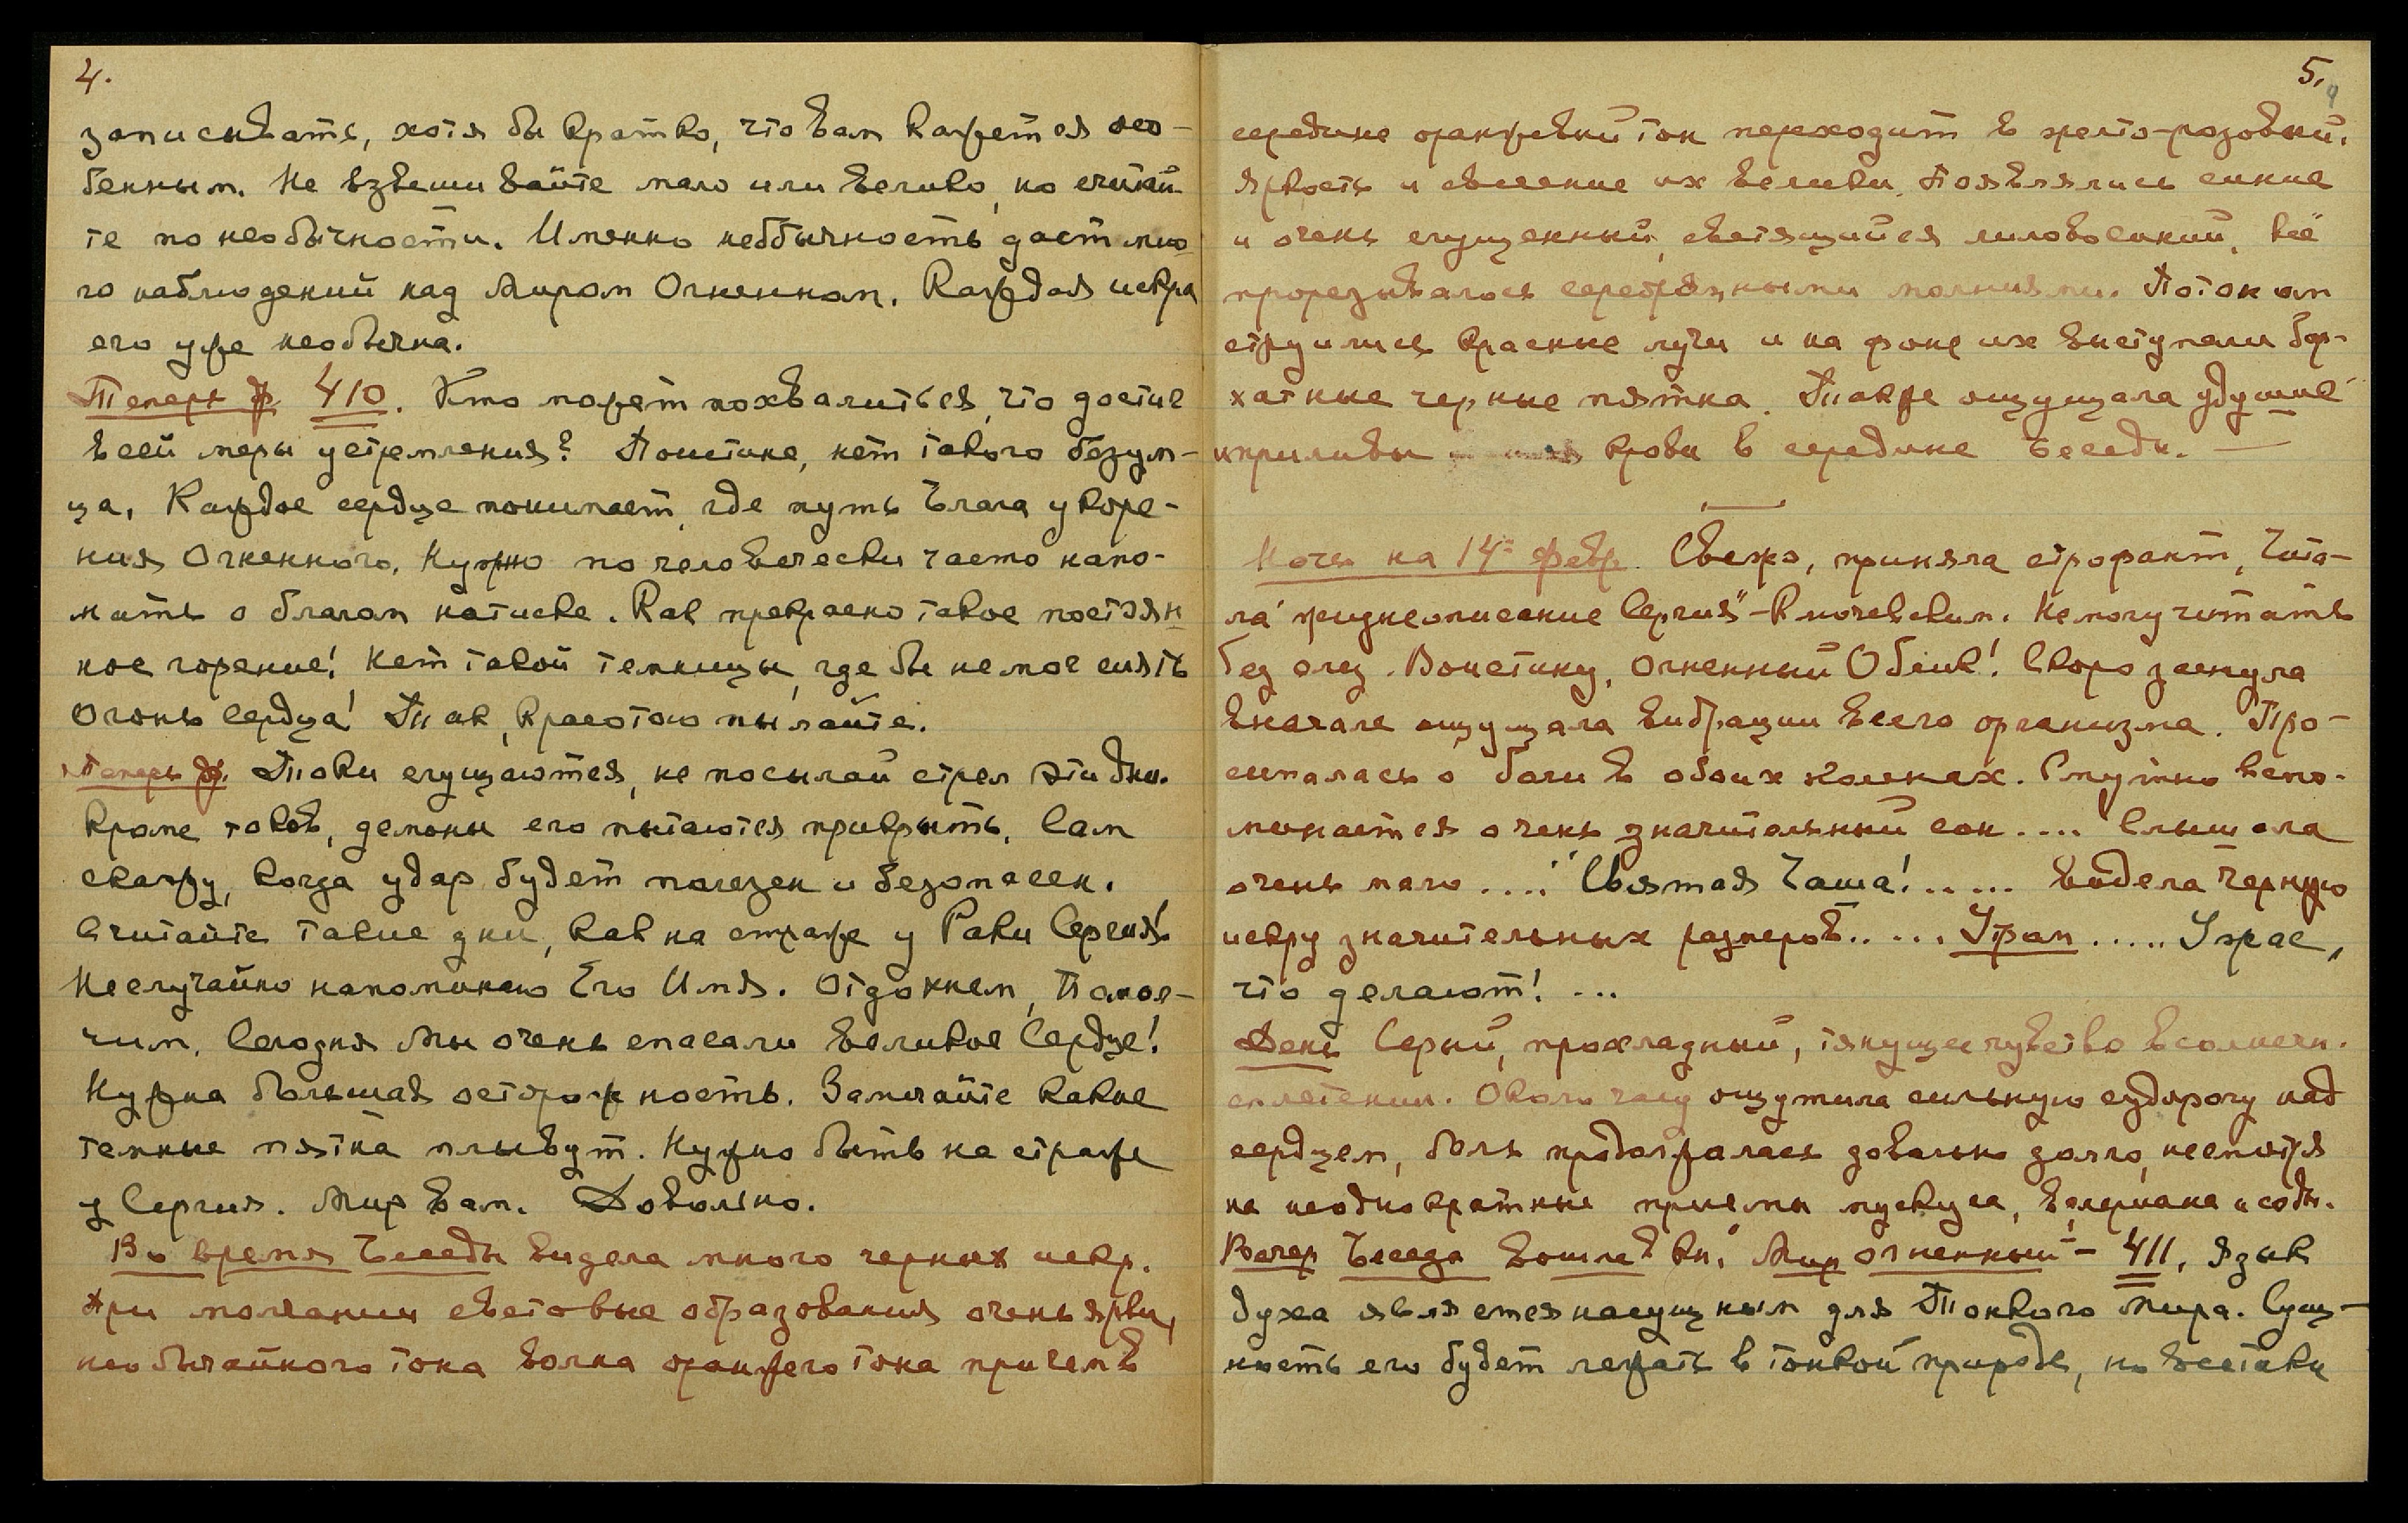 4.
записывать, хотя бы кратко, что вам кажется осо-
бенным. Не взвешивайте мало или велико, но считай-
те по необычности. Именно необычность дает мно-
го наблюдений над Миром Огненным. Каждая искра
его уже необычна.
Теперь др. 410. Кто может похвалиться, что достиг
всей меры устремления? Поистине, нет такого безум-
ца. Каждое сердце понимает, где путь Блага ускоре-
ния Огненного. Нужно по человечески часто напо-
мнить о благом натиске. Как прекрасно такое постоян-
ное горение! Нет такой темницы, где бы не мог сиять
Огонь Сердца! Так, красотою пылайте.
Теперь др. Токи сгущаются, не посылай стрел эти дни.
Кроме токов, демоны его пытаются прикрыть. Сам
скажу, когда удар будет полезен и безопасен.
Считайте такие дни, как на страже у Раки Сергия!
Неслучайно напоминаю Его Имя. Отдохнем, Помол-
чим. Сегодня Мы очень спасали Великое Сердце!
Нужна большая осторожность. Замечайте какие
темные пятна плывут. Нужно быть на страже
у Сергия. Мир вам. Довольно.
Во время Беседы видела много черных искр.
При молчании световые образования очень ярки,
необычайного тона волна оранжего тона причем в
5.
середине оранжевый тон переходит в желто-розовый.
Яркость и свечение их велики. Появлялись синие
и очень сгущенный, светящийся лилово синий, всё
прорезывалось серебряными молниями. Потоком
струились красные лучи и на фоне их выступали бар-
хатные черные пятна. Также ощущала удушие
и приливы крови в середине Беседы. —
Ночь на 14-ое февр. Свежо, приняла строфант, Чита-
ла "жизнеописание Сергия" - Ключевским. Не могу читать
без слез. Воистину, Огненный Облик! Скоро заснула
вначале ощущала вибрации всего организма. Про-
сыпалась о боли в обоих коленах. Смутно вспо-
минается очень значительный сон.... Слышала
очень мало.... "Святая Чаша!..... Видела Черную
искру значительных размеров..... Утром..... Ужас,
что делают! ...
День Серый, прохладный, тянущее чувство в солнечн.
сплетении. Около часу ощутила сильную судорогу над
сердцем, боль продолжалась довольно долго, несмотря
на неоднократные приемы мускуса, валериана и соды.
Вечер Беседа Вошле в кн. "Мир огненный" - 411. Язык
духа является насущным для Тонкого Мира. Сущ-
ность его будет лежать в тонкой природе, но всетаки